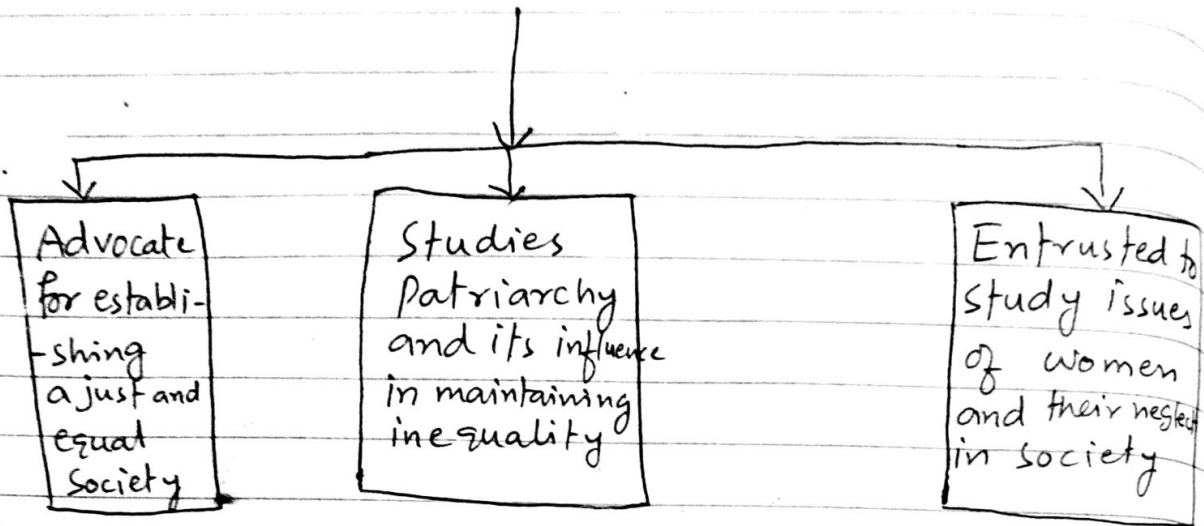 Advocate
for establi-
-shing
a just and
equal
Society
Studies
Patriarchy
and its influence
in maintaining
inequality
Entrusted to
study issues
of women
and their neglect
in society